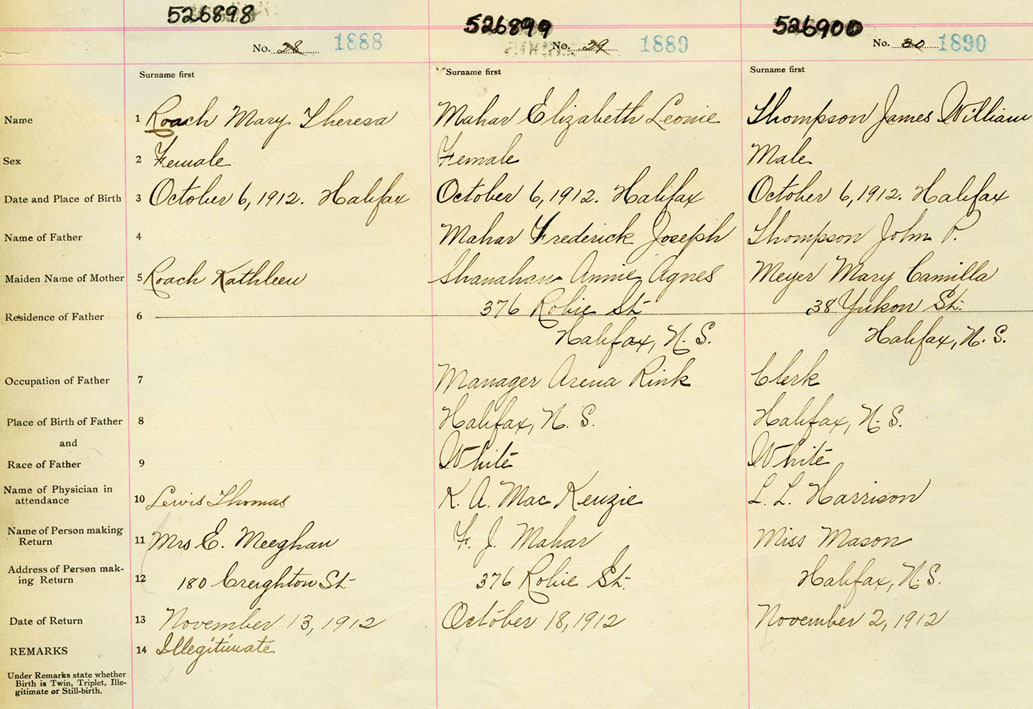 526898 526899 526900
No. 28 1888 No. 29 1889 No. 30 1890
Surname first Surname first Surname first
Name 1 Roach Mary Theresa Mahar Elizabeth Leonie Thompson James William
Sex 2 Female Female Male
Date and Place of Birth 3 October 6, 1912. Halifax October 6, 1912. Halifax October 6, 1912. Halifax
Name of Father 4 Mahar Frederick Joseph Thompson John P.
Maiden Name of Mother 5 Roach Kathleen Shanahan Annie Agnes Meyer Mary Camilla
Residence of Father 6 376 Robie St. 38 Yukon St.
Halifax, N.S. Halifax, N.S.
Occupation of Father 7 Manager Arena Rink Clerk
Place of Birth of Father 8 Halifax, N.S. Halifax, N.S.
and
Race of Father 9 White White
Name of Physician in
attendance 10 Lewis Thomas K. A. MacKenzie L. L. Harrison
Name of Person making
Return 11 Mrs E. Meeghan F. J. Mahar Miss Mason
Address of Person mak-
ing Return 12 180 Creighton St. 376 Robie St. Halifax, N.S.
Date of Return 13 November 13, 1912 October 18, 1912 November 2, 1912
REMARKS 14 Illegitimate
Under Remarks state whether
Birth is Twin, Triplet, Ille-
gitimate or Still-birth.